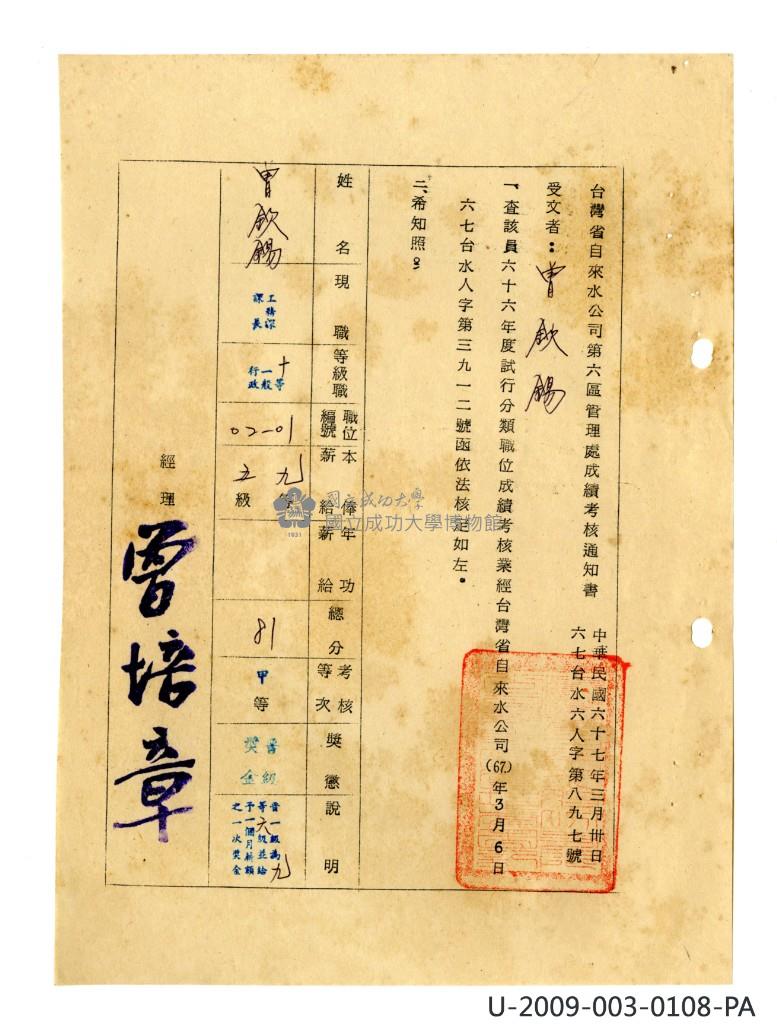 台灣省自來水公司第六區管理處成績考核通知書
中華民國六十七年三月卅日
六七台水六人字第八九七號
受文者：曾欽錫
一、查該員六十六年度試行分類職位成績考核業經台灣省自來水公司(67.)年3月6日
六七台水人字第三九一二號函依法核定如左。
二、希知照。
姓名
現職
等級職
職位編號
本薪
俸給
年功薪給
總分
考核等次
獎懲
說明
曾欽錫
工務課
課長
十等
一般
行政
02-01
九等
五級
81
甲等
晉級
獎金
晉一級為九
等六級並給
予一個月薪額
之一次獎金
經理
曾培章
國立成功大學
國立成功大學博物館
1931
U-2009-003-0108-PA